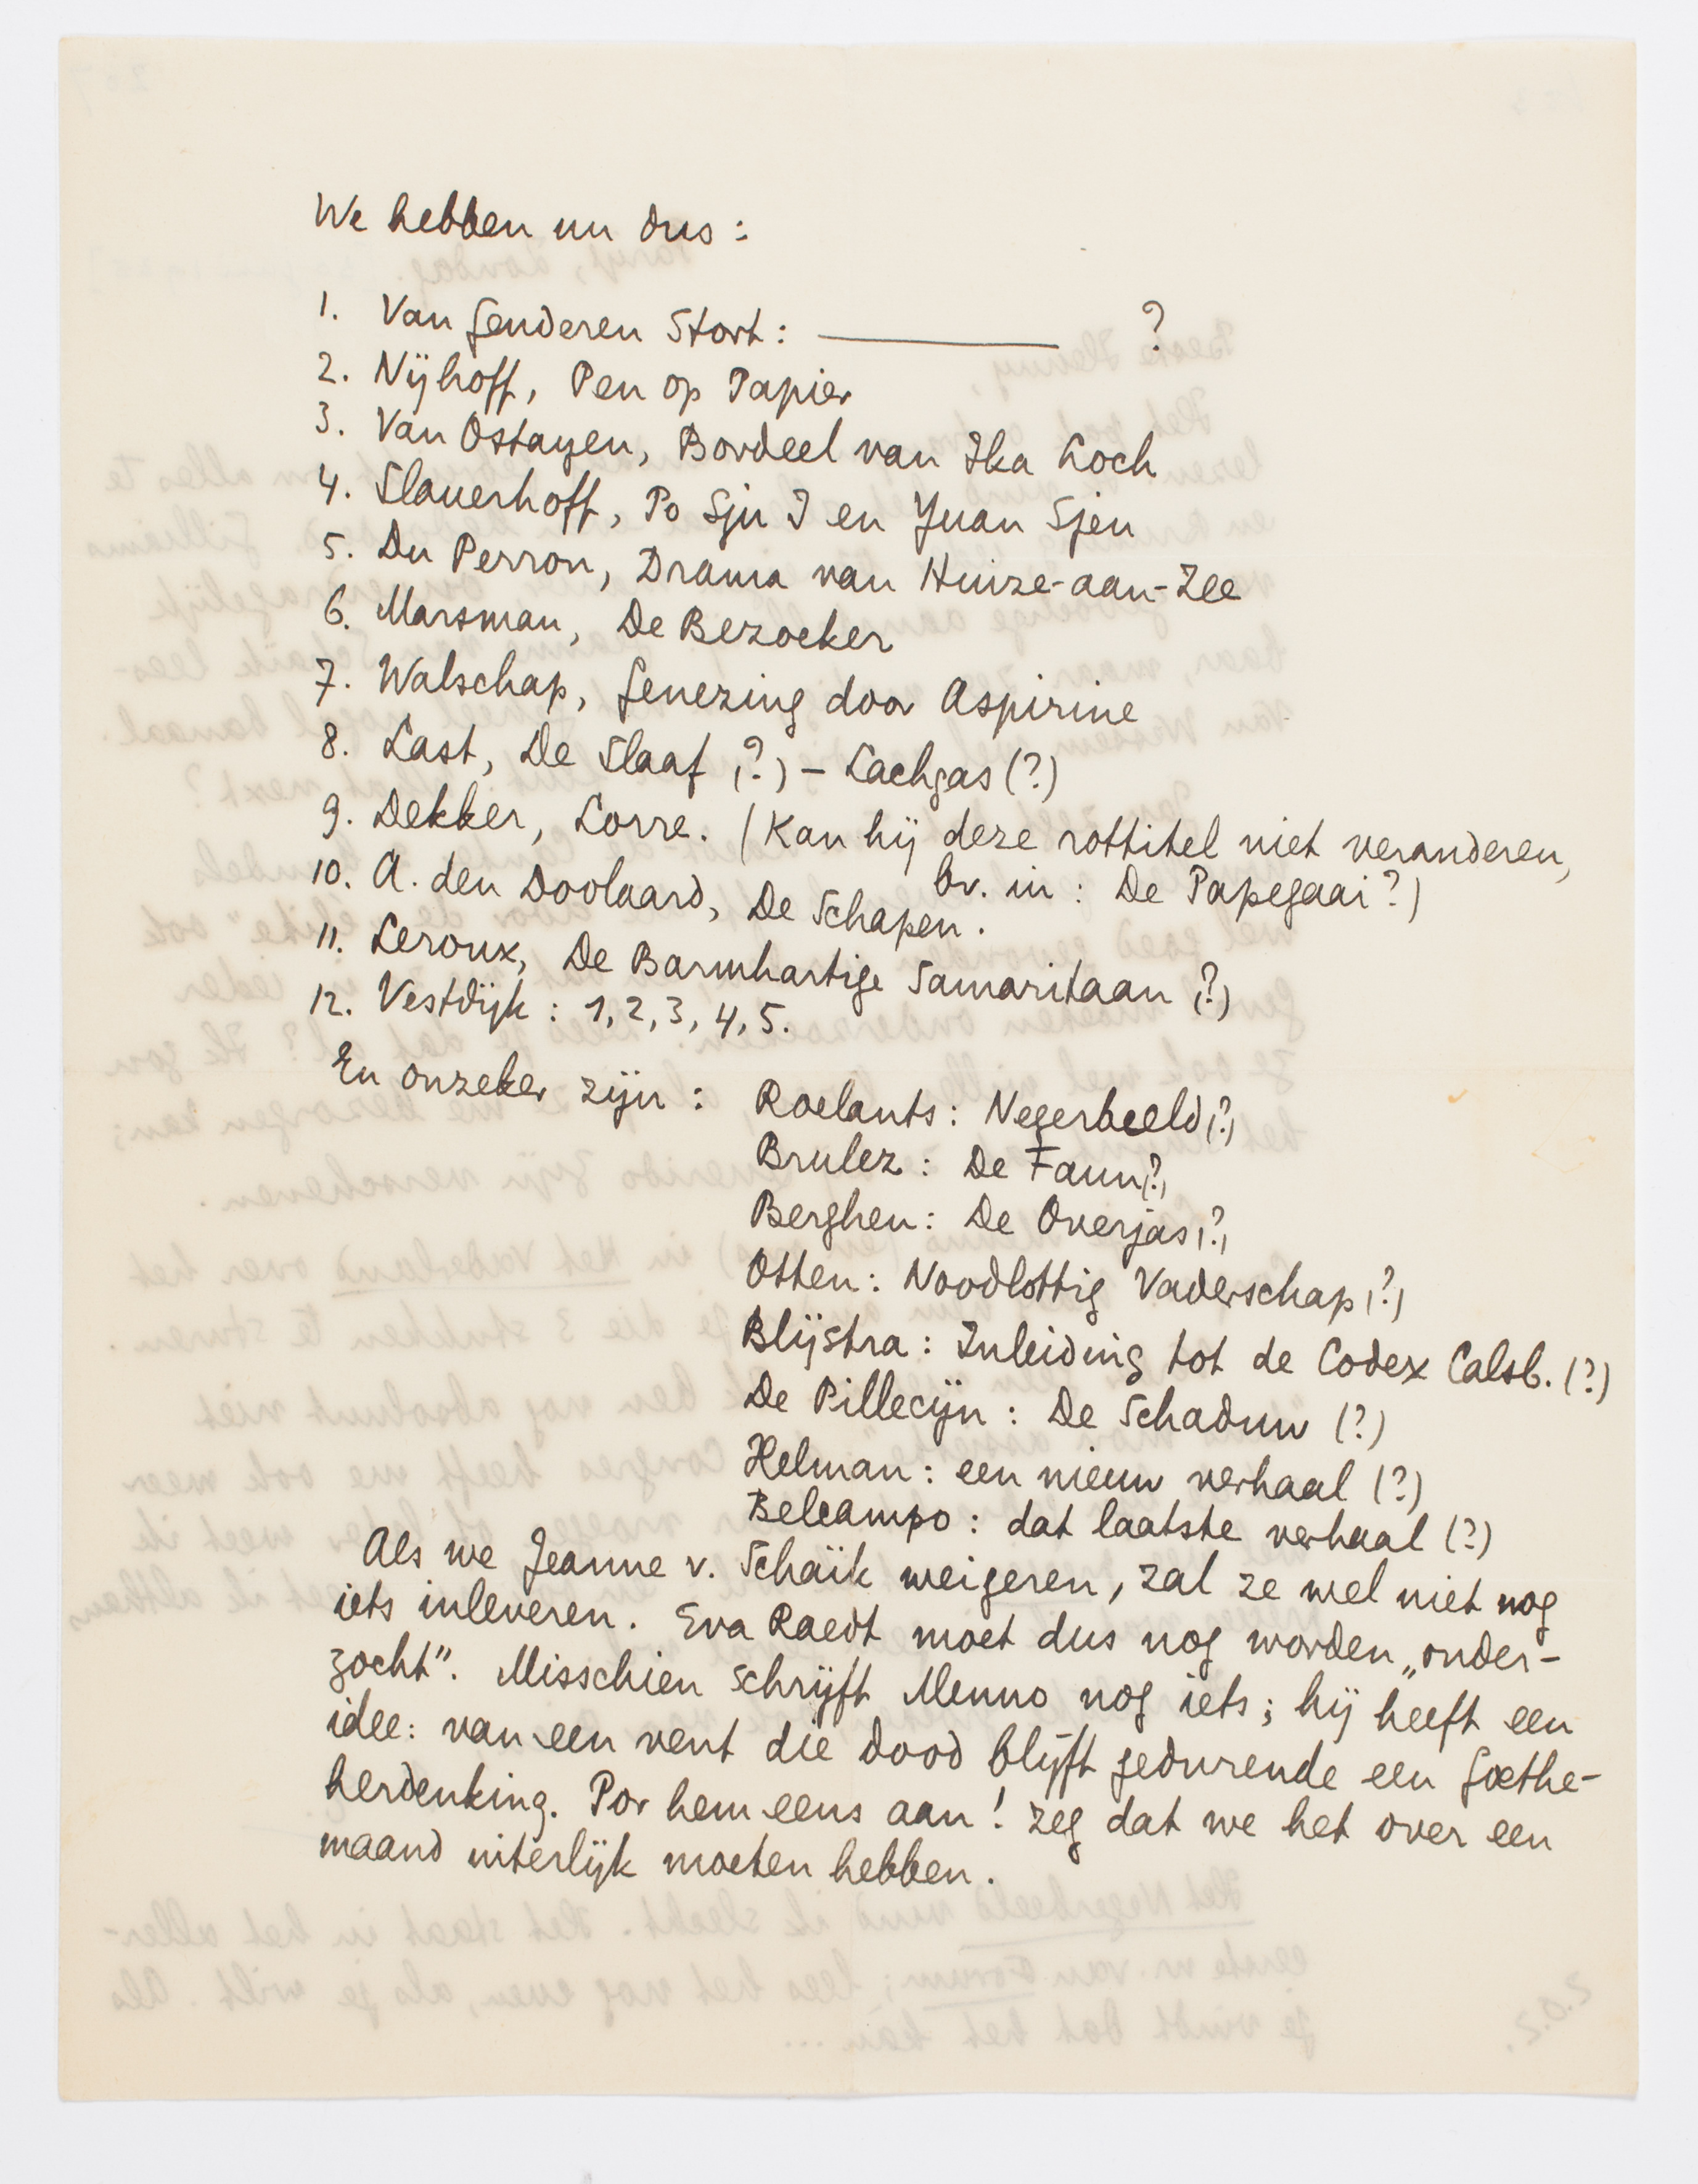 We hebben nu dus:
1. Van Genderen Stort: ———— ?
2. Nijhoff, Pen op Papier
3. Van Ostayen, Bordeel van Ika Loch
4. Slauerhoff, Po Sju I en Yuan Sjen
5. Du Perron, Drama van Huize-aan-Zee
6. Marsman, De Bezoeker
7. Walschap, Genezing door Aspirine
8. Last, De Slaaf (?) – Lachgas (?)
9. Dekker, Lorre. (Kan hij deze rottitel niet veranderen,
bv. in: De Papegaai?)
10. A. den Doolaard, De Schapen.
11. Leroux, De Barmhartige Samaritaan (?)
12. Vestdijk: 1, 2, 3, 4, 5.
En onzeker zijn: Roelants: Negerbeeld (?)
Brulez: De Faun (?)
Berghen: De Overjas (?)
Otten: Noodlottig Vaderschap (?)
Blijstra: Inleiding tot de Codex Calsb. (?)
De Pillecijn: De Schaduw (?)
Helman: een nieuw verhaal (?)
Belcampo: dat laatste verhaal (?)
Als we Jeanne v. Schaik weigeren, zal ze wel niet nog
iets inleveren. Eva Raedt moet dus nog worden „onder-
zocht”. Misschien schrijft Menno nog iets; hij heeft een
idee: van een vent die dood blijft gedurende een Goethe-
herdenking. Por hem eens aan! Zeg dat we het over een
maand uiterlijk moeten hebben.